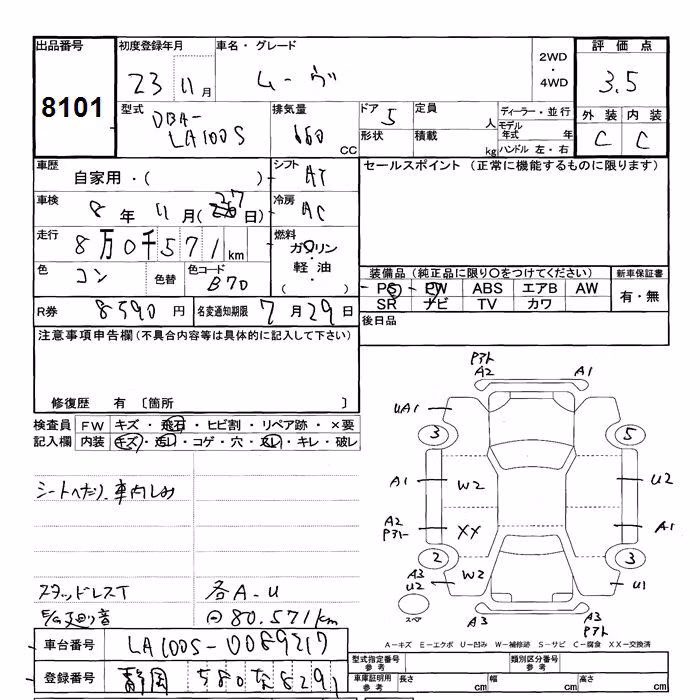 出品番号 初度登録年月 車名・グレード 2WD・4WD 評価点
8101 23 11月 ムーヴ 3.5
型式 DBA-LA100S 排気量 660CC ドア 5 定員 人 ディーラー・並行 外装 内装
形状 積載 kg モデル年式 年 C C
ハンドル 左・右
車歴 自家用・( ) シフト AT セールスポイント (正常に機能するものに限ります)
車検 8年 11月(27日) 冷房 AC
走行 8万0千571km 燃料 ガソリン・軽油・( )
色 コン 色替 色コード B70 装備品(純正品に限り○をつけてください) 新車保証書
PS PW ABS エアB AW 有・無
R券 8590円 名変通知期限 7月29日 SR ナビ TV カワ
注意事項申告欄(不具合内容等は具体的に記入して下さい) 後日品
修復歴 有 〔箇所 〕
検査員 FW キズ・飛石・ヒビ割・リペア跡・×要
記入欄 内装 キズ・汚レ・コゲ・穴・スレ・キレ・破レ
Pアト
A2 A1
UA1
3 5
A1 W2 U2
A2 XX A1
Pアト
2 3
A3 W2 U1
U2
スペア A3 A3
Pアト
シートへたり、車内しみ
スタッドレスT 各A-U
E/G廻り音 80.571km
A-キズ E-エクボ U-凹み W-補修跡 S-サビ C-腐食 XX-交換済
車台番号 LA100S-0089217
型式指定番号 参考 類別区分番号 参考
登録番号 静岡 580 な 8291
車庫証明用 参考 長さ cm 幅 cm 高さ cm